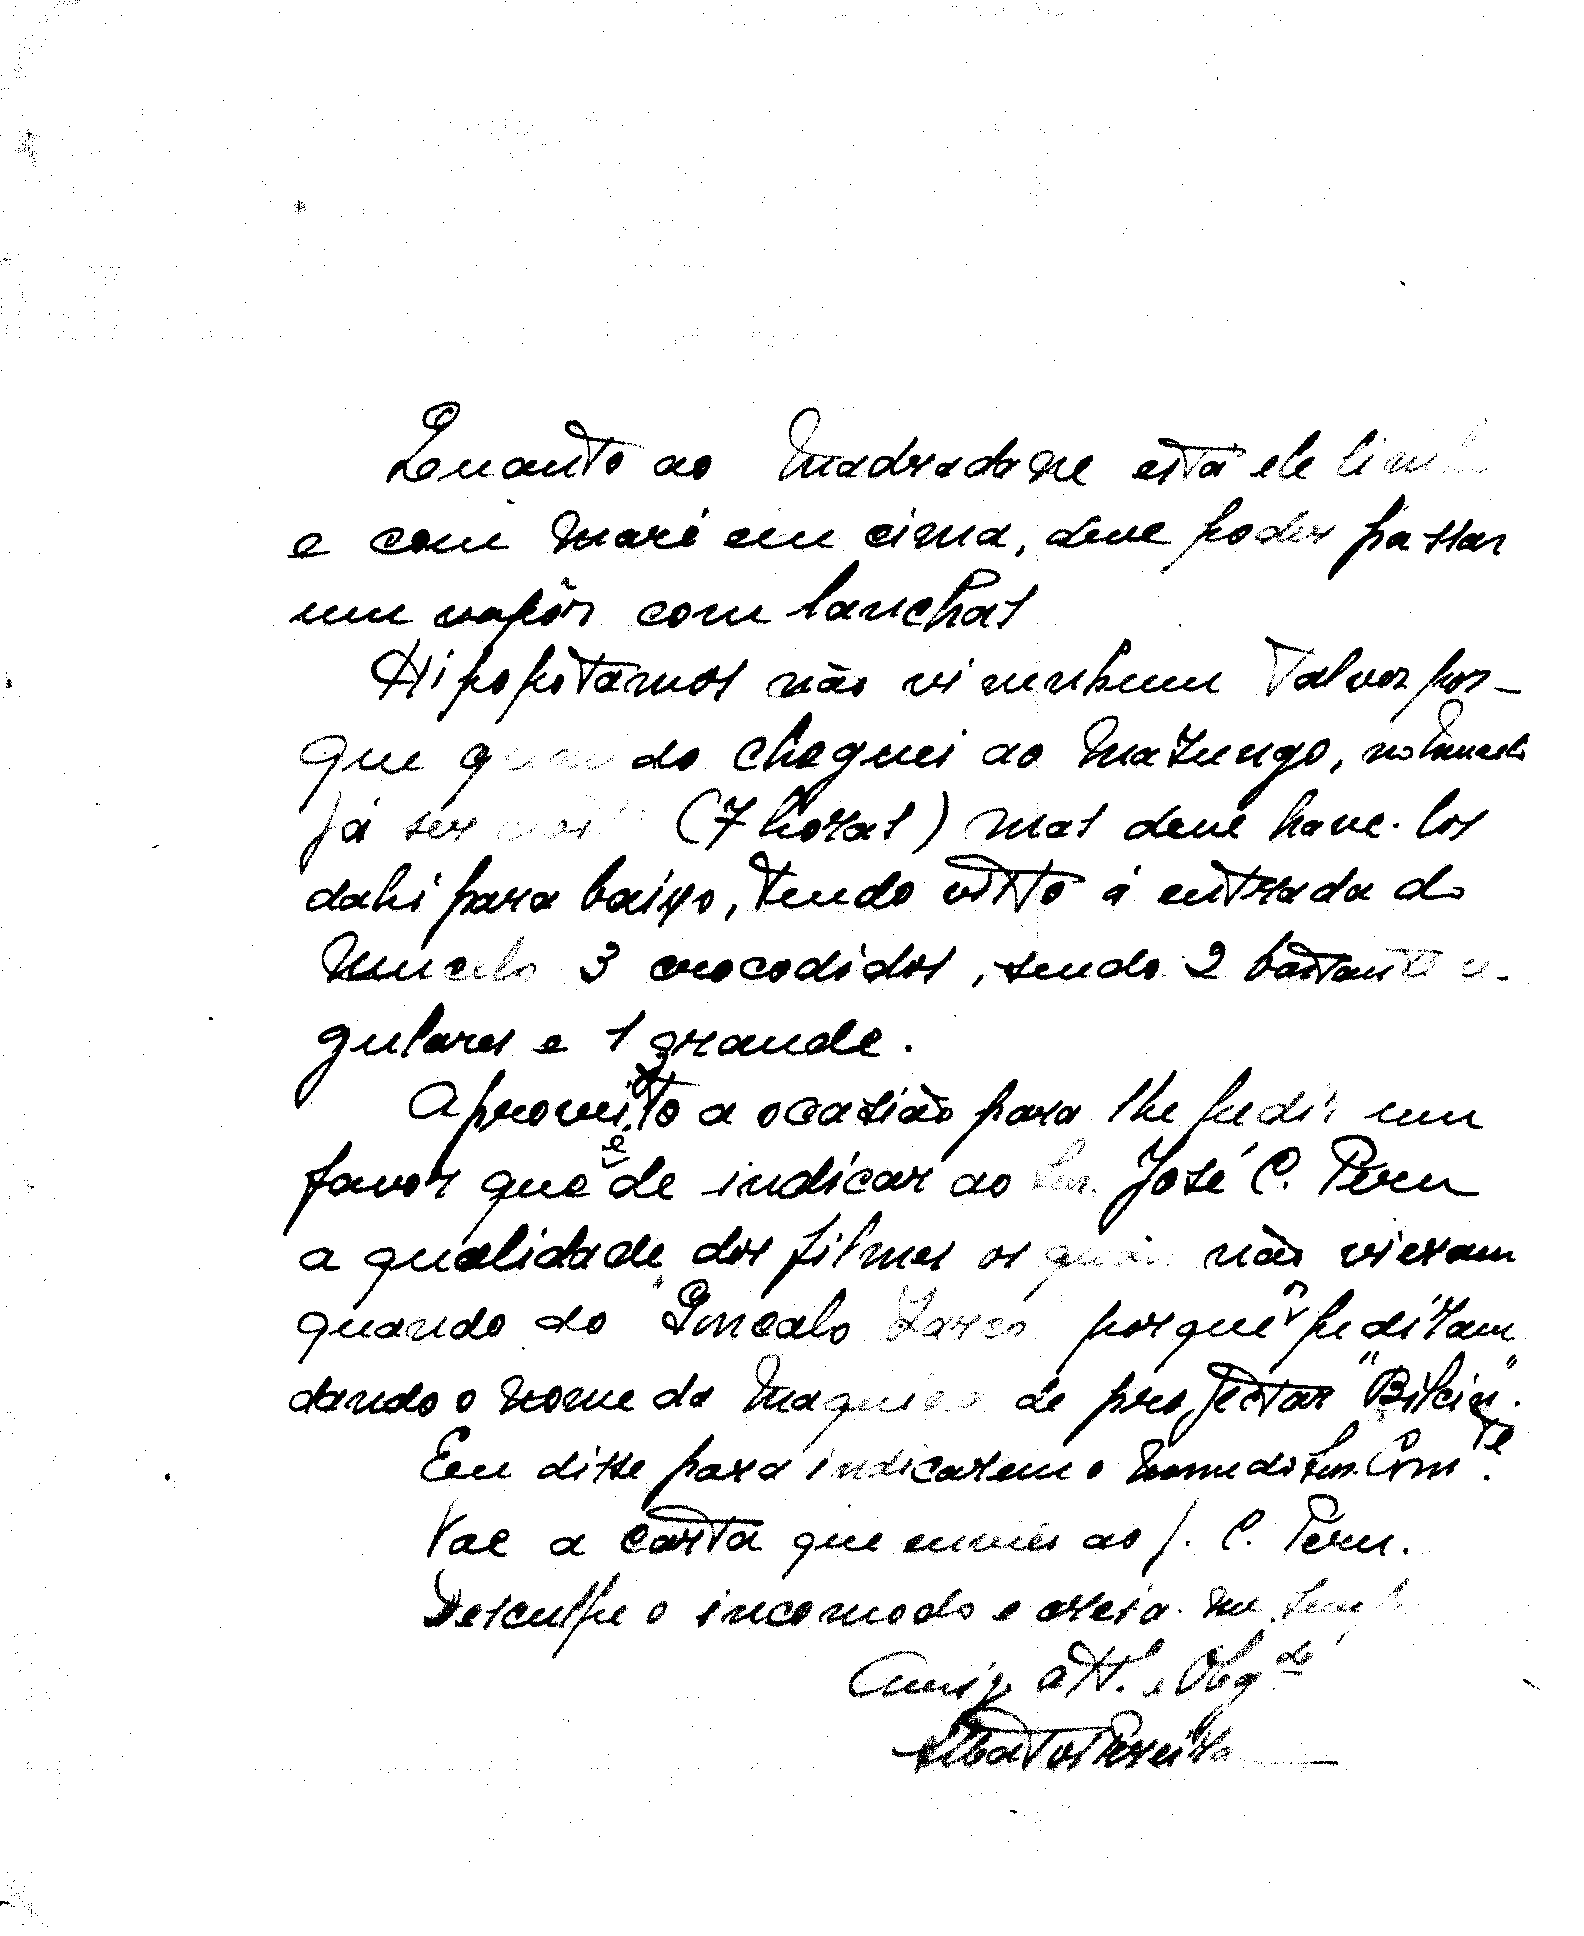 Quanto ao Madradane está ele limpo
e com maré em cima, deve poder passar
um vapôr com lanchas
Hipopotamos não vi nenhum talvez por-
que quando cheguei ao Matungo, no Mucelo
já ser noite (7 horas) mas deve have-los
dahi para baixo, tendo visto á entrada do
Mucelo 3 crocodidos, sendo 2 bastante re-
gulares e 1 grande.
Aproveito a ocasião para lhe pedir um
favor que é de indicar ao Snr. José C. Peru
a qualidade dos filmes os quais não vieram
quando do "Gonçalo Zarco" porque pediram
dando o nome da maquina de projectar "Bilcia".
Eu disse para indicarem o nome do Snr. Comte.
Vae a carta que enviei ao J. C. Peru.
Desculpe o incomodo e creia-me sempre
Amigo att. e Obgdo